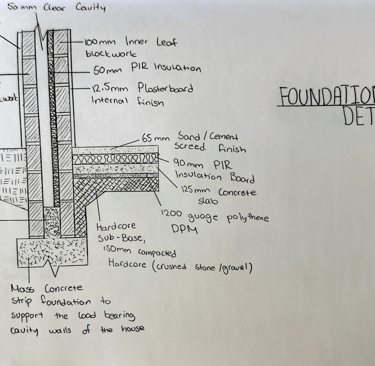 50mm Clear Cavity
100mm Inner Leaf
blockwork
50mm PIR Insulation
12.5mm Plasterboard
Internal finish
FOUNDATION
DET
65mm Sand/Cement
Screed finish
90mm PIR
Insulation Board
125mm Concrete
slab
1200 guage polythene
DPM
Hardcore
Sub-Base,
150mm compacted
Hardcore (crushed stone/gravel)
Mass Concrete
strip foundation to
support the load bearing
cavity walls of the house